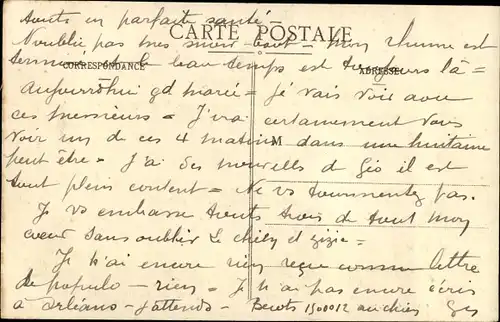 touts en parfaite santé =
CARTE POSTALE
N'oublie pas mes bout = mon rhume est
CORRESPONDANCE
ADRESSE
terminé le beau temps est toujours là =
aujourd'hui gde marée = Je vais voir avec
ces messieurs = J'irai certainement vous
voir un de ces 4 matins dans une huitaine
peut être = J'ai des nouvelles de Géo il est
tout plein content = Ne vs tourmentez pas.
Je vs embrasse touts trois de tout mon
cœur sans oublier le et zizie =
Je n'ai encore rien reçu comme lettre
de populo - rien = Je n'ai pas encore écris
à Orléans = J'attends = Becots 1500012 au chien